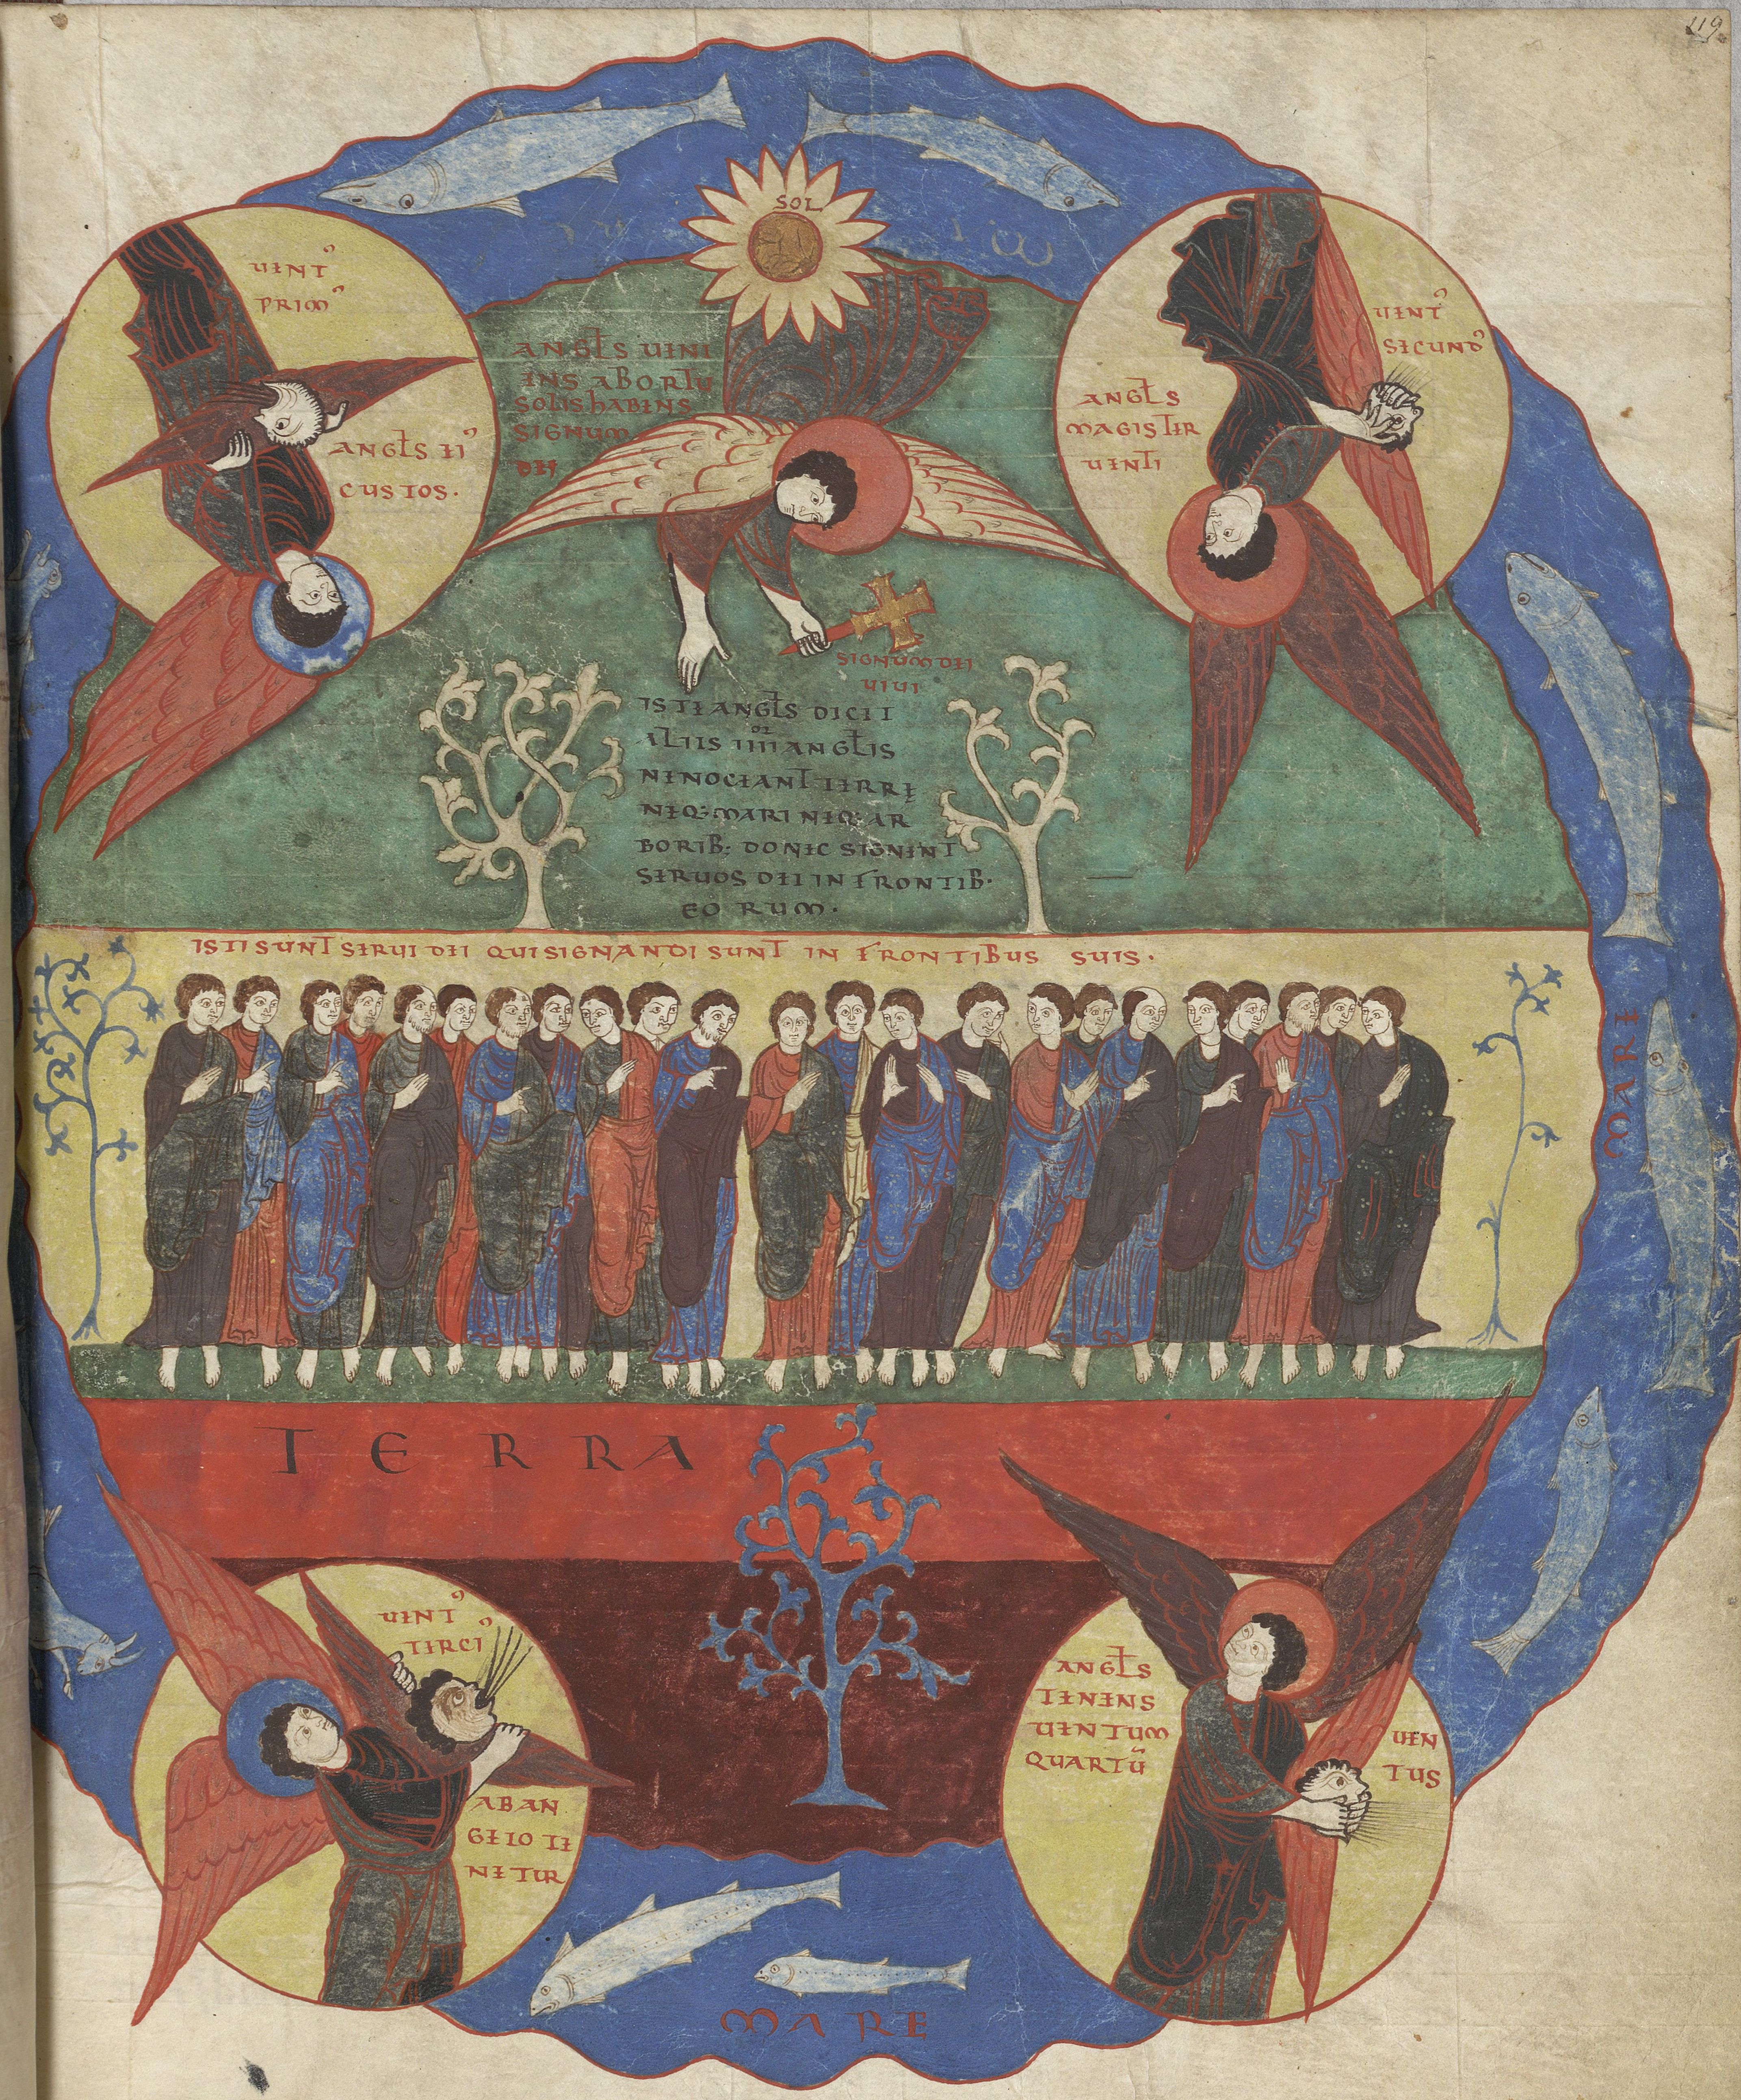 119
SOL
UENT᾿
PRIM᾿
ANGLS EI᾿
CUSTOS.
ANGLS UENI
ENS AB ORTU
SOLIS hABENS
SIGNUM
DEI
UENT᾿
SECUND᾿
ANGLS
MAGISTER
UENTI
SIGNUM DEI
UIUI
ISTE ANGLS DICIT
ALIIS IIIIOR ANGLIS
NE NOCEANT TERRĘ
NEQ: MARI NEQ: AR
BORIB: DONEC SIGNENT
SERUOS DEI IN FRONTIB·
EORUM·
ISTI SUNT SERUI DEI QUI SIGNANDI SUNT IN FRONTIBUS SUIS·
MARE
TERRA
UENT᾿
TERCI᾿
AB AN
GELO TE
NETUR
ANGLS
TENENS
UENTUM
QUARTŪ
UEN
TUS
MARE